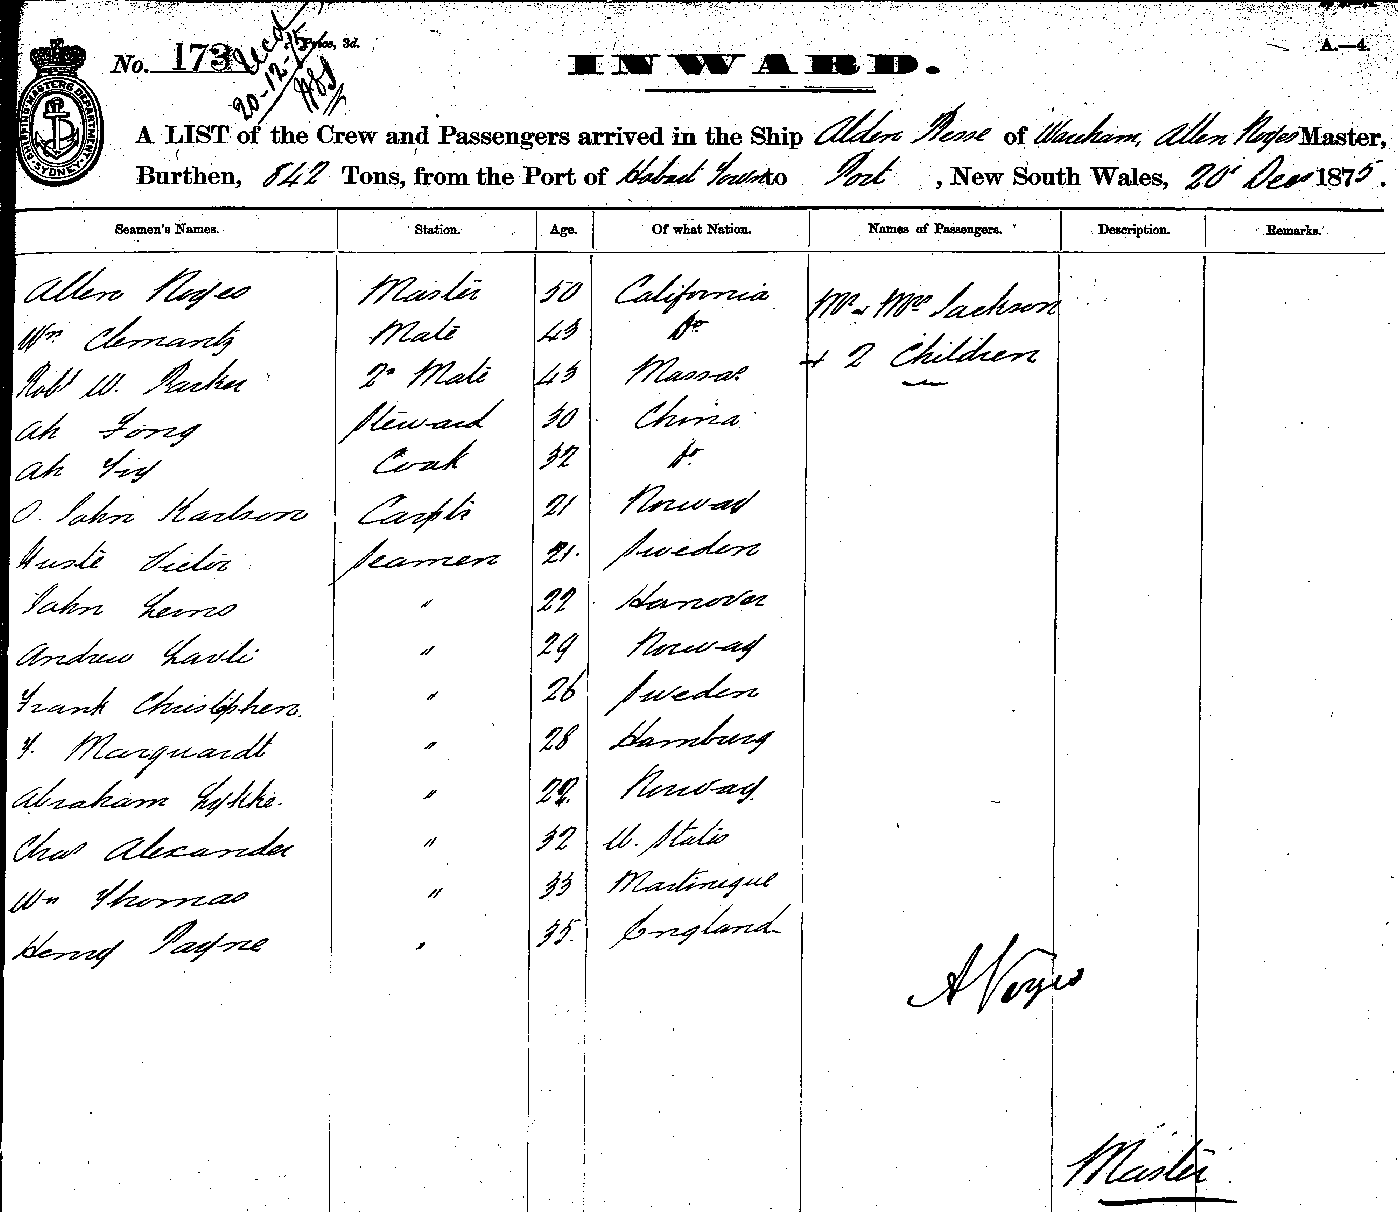 No. 173
Recd
20-12-75
3d.
A.—4.
SHIPPING MASTERS DEPARTMENT SYDNEY
INWARD.
A LIST of the Crew and Passengers arrived in the Ship Alden Besse of Wareham, Allen Noyes Master,
Burthen, 842 Tons, from the Port of Hobart Town to Port , New South Wales, 20' Dec 1875.
Seamen's Names. Station. Age. Of what Nation. Names of Passengers. Description. Remarks.
Allen Noyes Master 50 California Mr & Mrs Jackson
Wm Clemants Mate 43 Do + 2 Children
Robt W. Parker 2n Mate 43 Massas
Ah Fong Steward 30 China
Ah Cook 32 Do
O. John Karlson Carptr 21 Norway
Guste Victor Seamen 21 Sweden
John Lems " 22 Hanover
Andrew Lavli " 29 Norway
Frank Christophen " 26 Sweden
F. Marquardt " 28 Hamburg
Abraham Lykke " 22 Norway
Chas Alexander " 32 U. States
Wm Thomas " 33 Martinique
Henry Payne " 35 England
A Noyes
Master